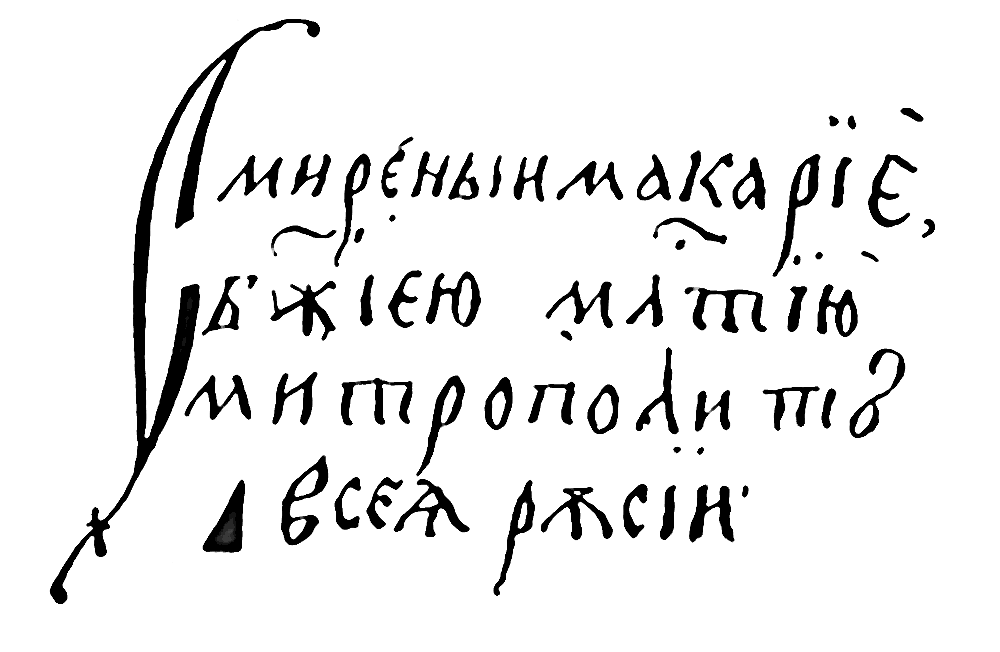 Смиреныи макарїе,
б҃жїею мл҃тїю
митрополитъ
всеѧ рѫсїи